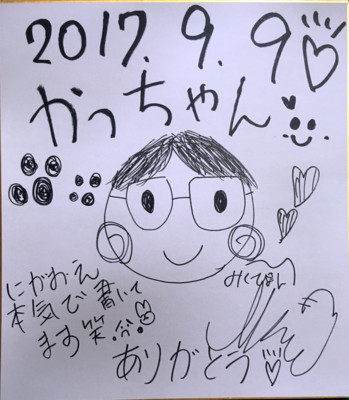 2017.9.9
かっちゃん
にがおえ
本気で書いて
ます笑
ありがとう